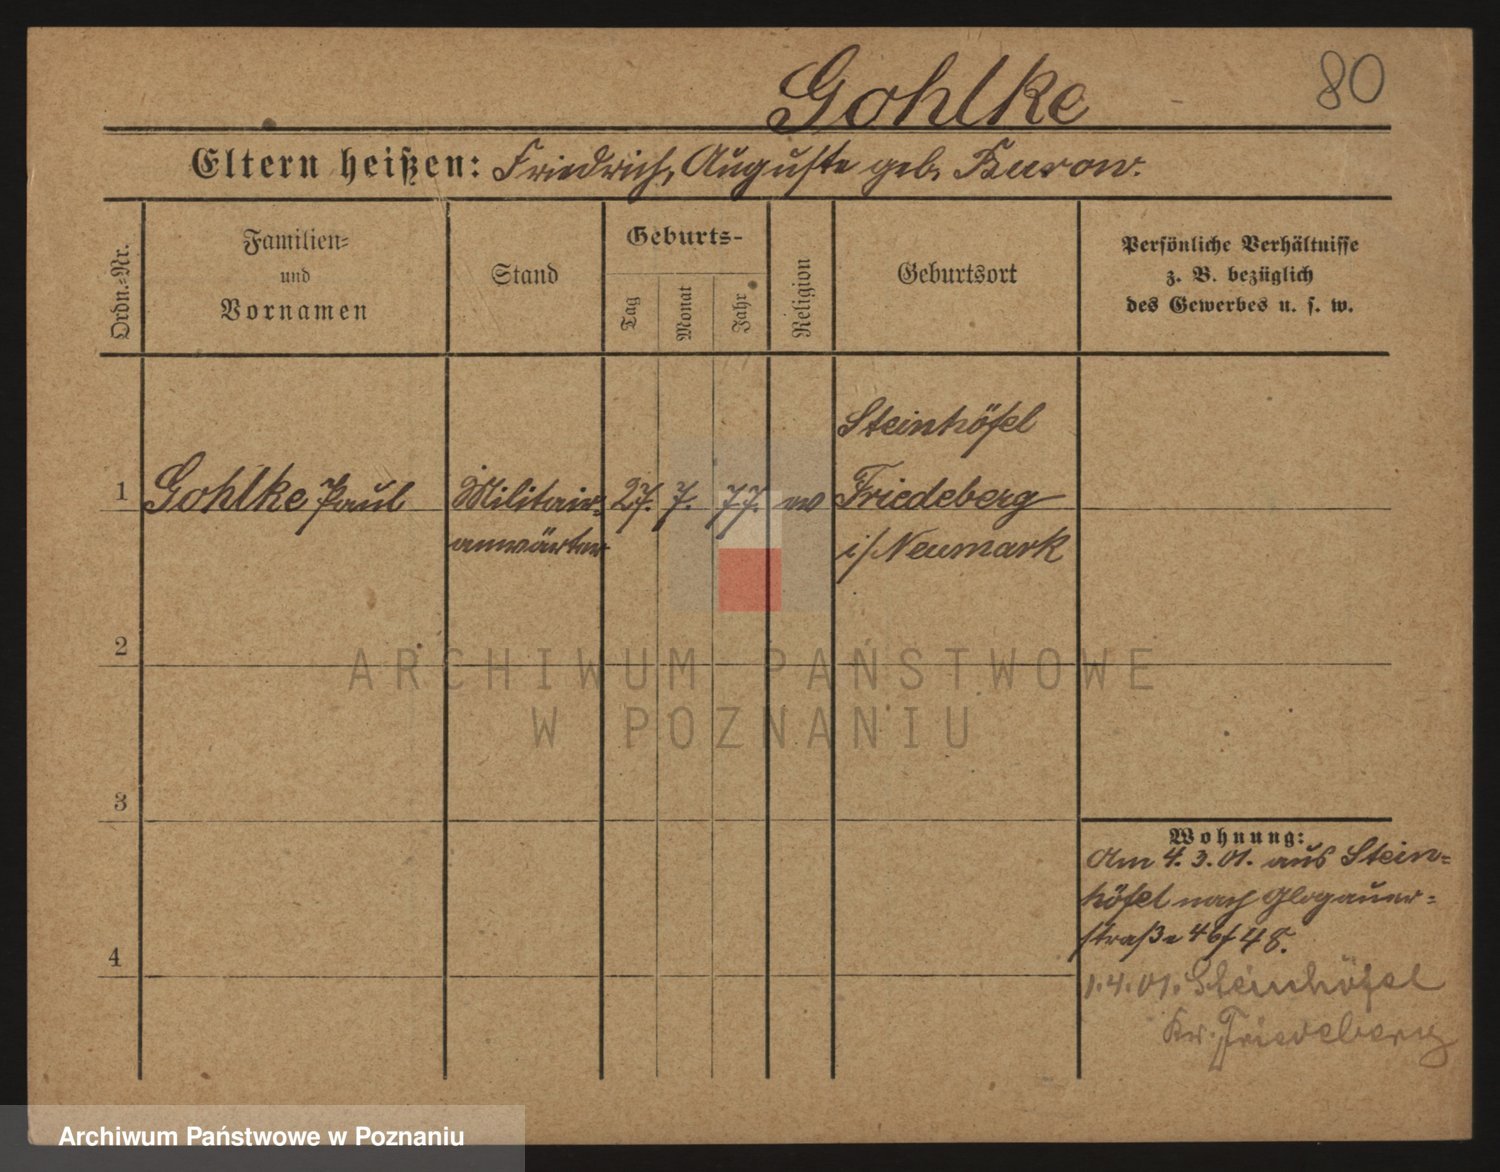 Gohlke
80
Eltern heißen: Friedrich, Auguste geb. Kurow.
Ordn.-Nr.
Familien-
und
Vornamen
Stand
Geburts-
Tag
Monat
Jahr
Religion
Geburtsort
Persönliche Verhältnisse
z. B. bezüglich
des Gewerbes u. s. w.
1
Gohlke Paul
Militair-
anwärter
27. 7. 77.
ev
Steinhöfel
Friedeberg
i/Neumark
2
ARCHIWUM PAŃSTWOWE
W POZNANIU
3
4
Wohnung:
Am 4.3.01. aus Stein-
höfel nach Glogauer-
straße 46/48.
1.4.01. Steinhöfel
Kr. Friedeberg
Archiwum Państwowe w Poznaniu